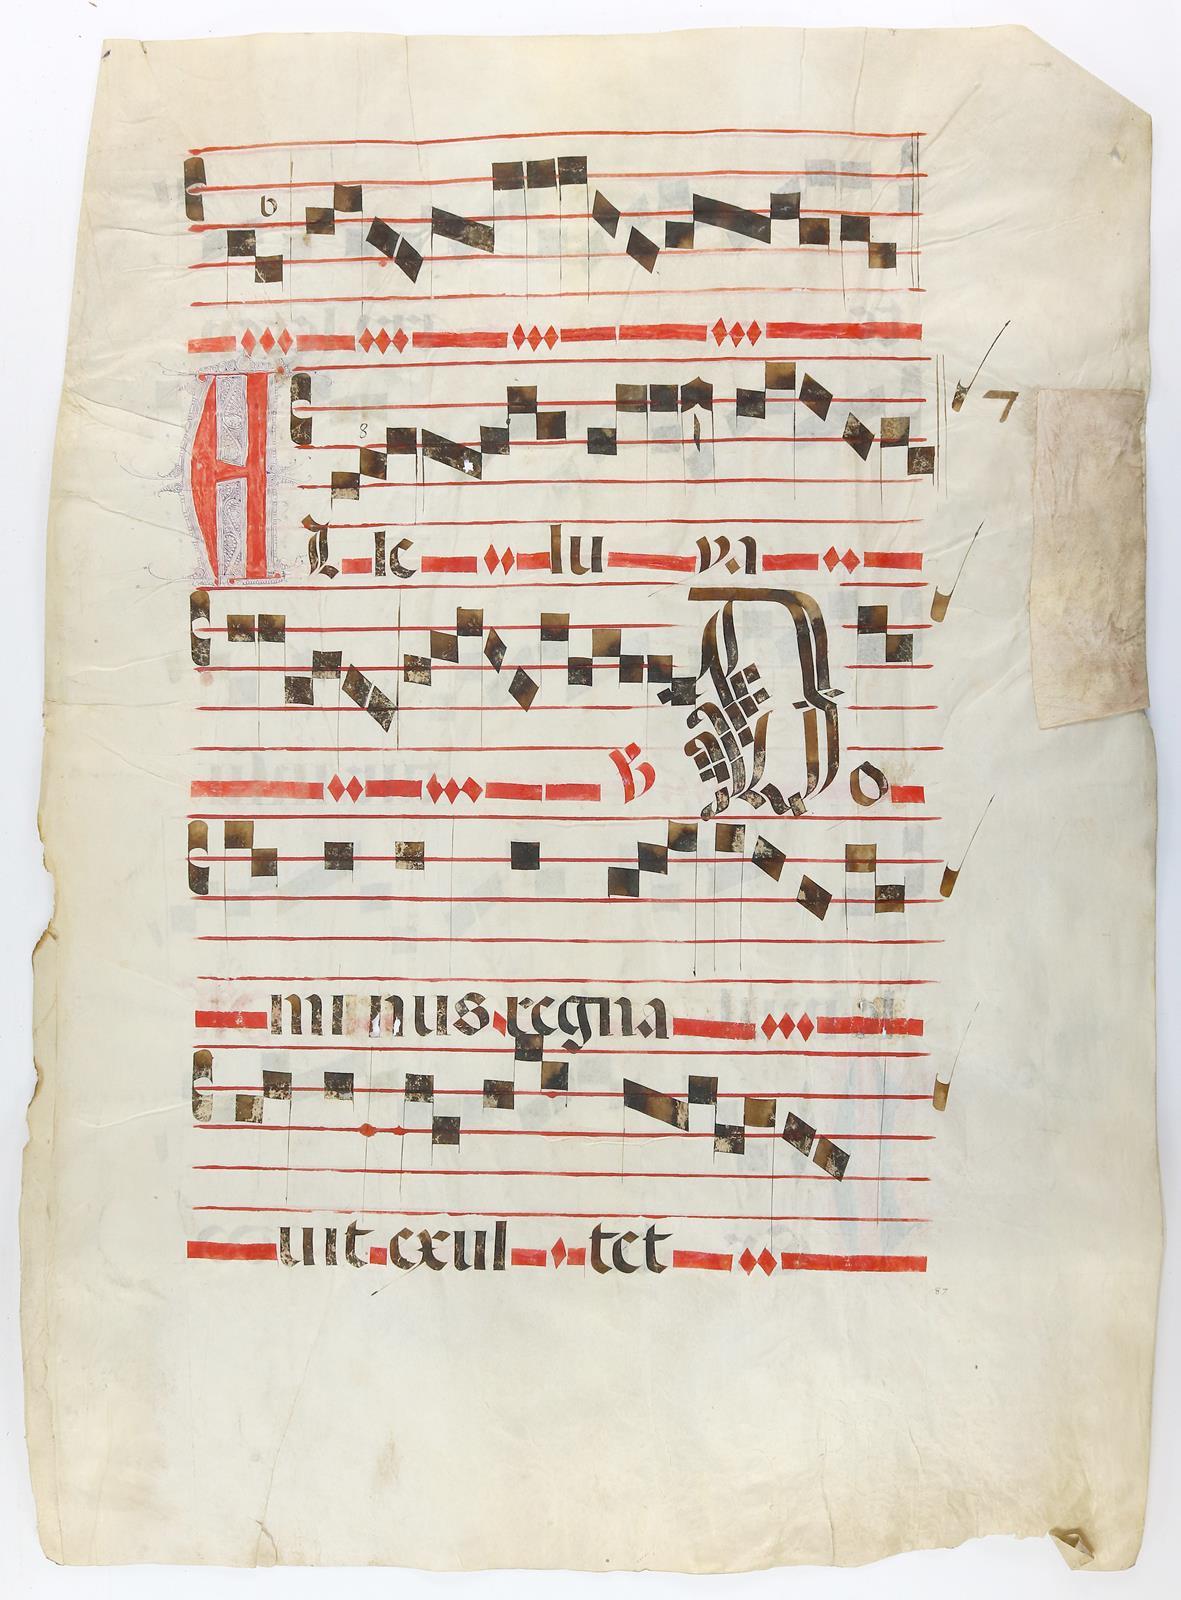 b
A 8
Le lu ya
℣ Do
minus regna
uit exul tet
87